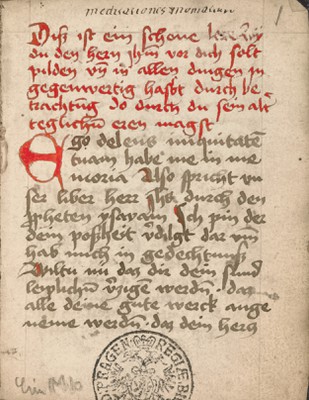 meditationes
1
Diß ist ein schone
du den hern ihm vor dich solt
pilden vn̄ in allen dingen in
gegenwertig habst durch be
trachtūg do durch du sein alt
teglichn̄ eren magst
Ego deleui iniquitatē
tuam habe me in me
moria Also spricht vn
ser liber herr ihs durch den
ꝓpheten ysayam Ich pin der
dein poßheit v̓dilgt dar vm̄
hab mich in gedechtnuß
Wiltu nu das dir dein sund
leiplichn̄ v̓zige werdn̄ das
alle deine gute werck ange
neme werdn̄ das dein hercz
PRAGEN REGIÆ B